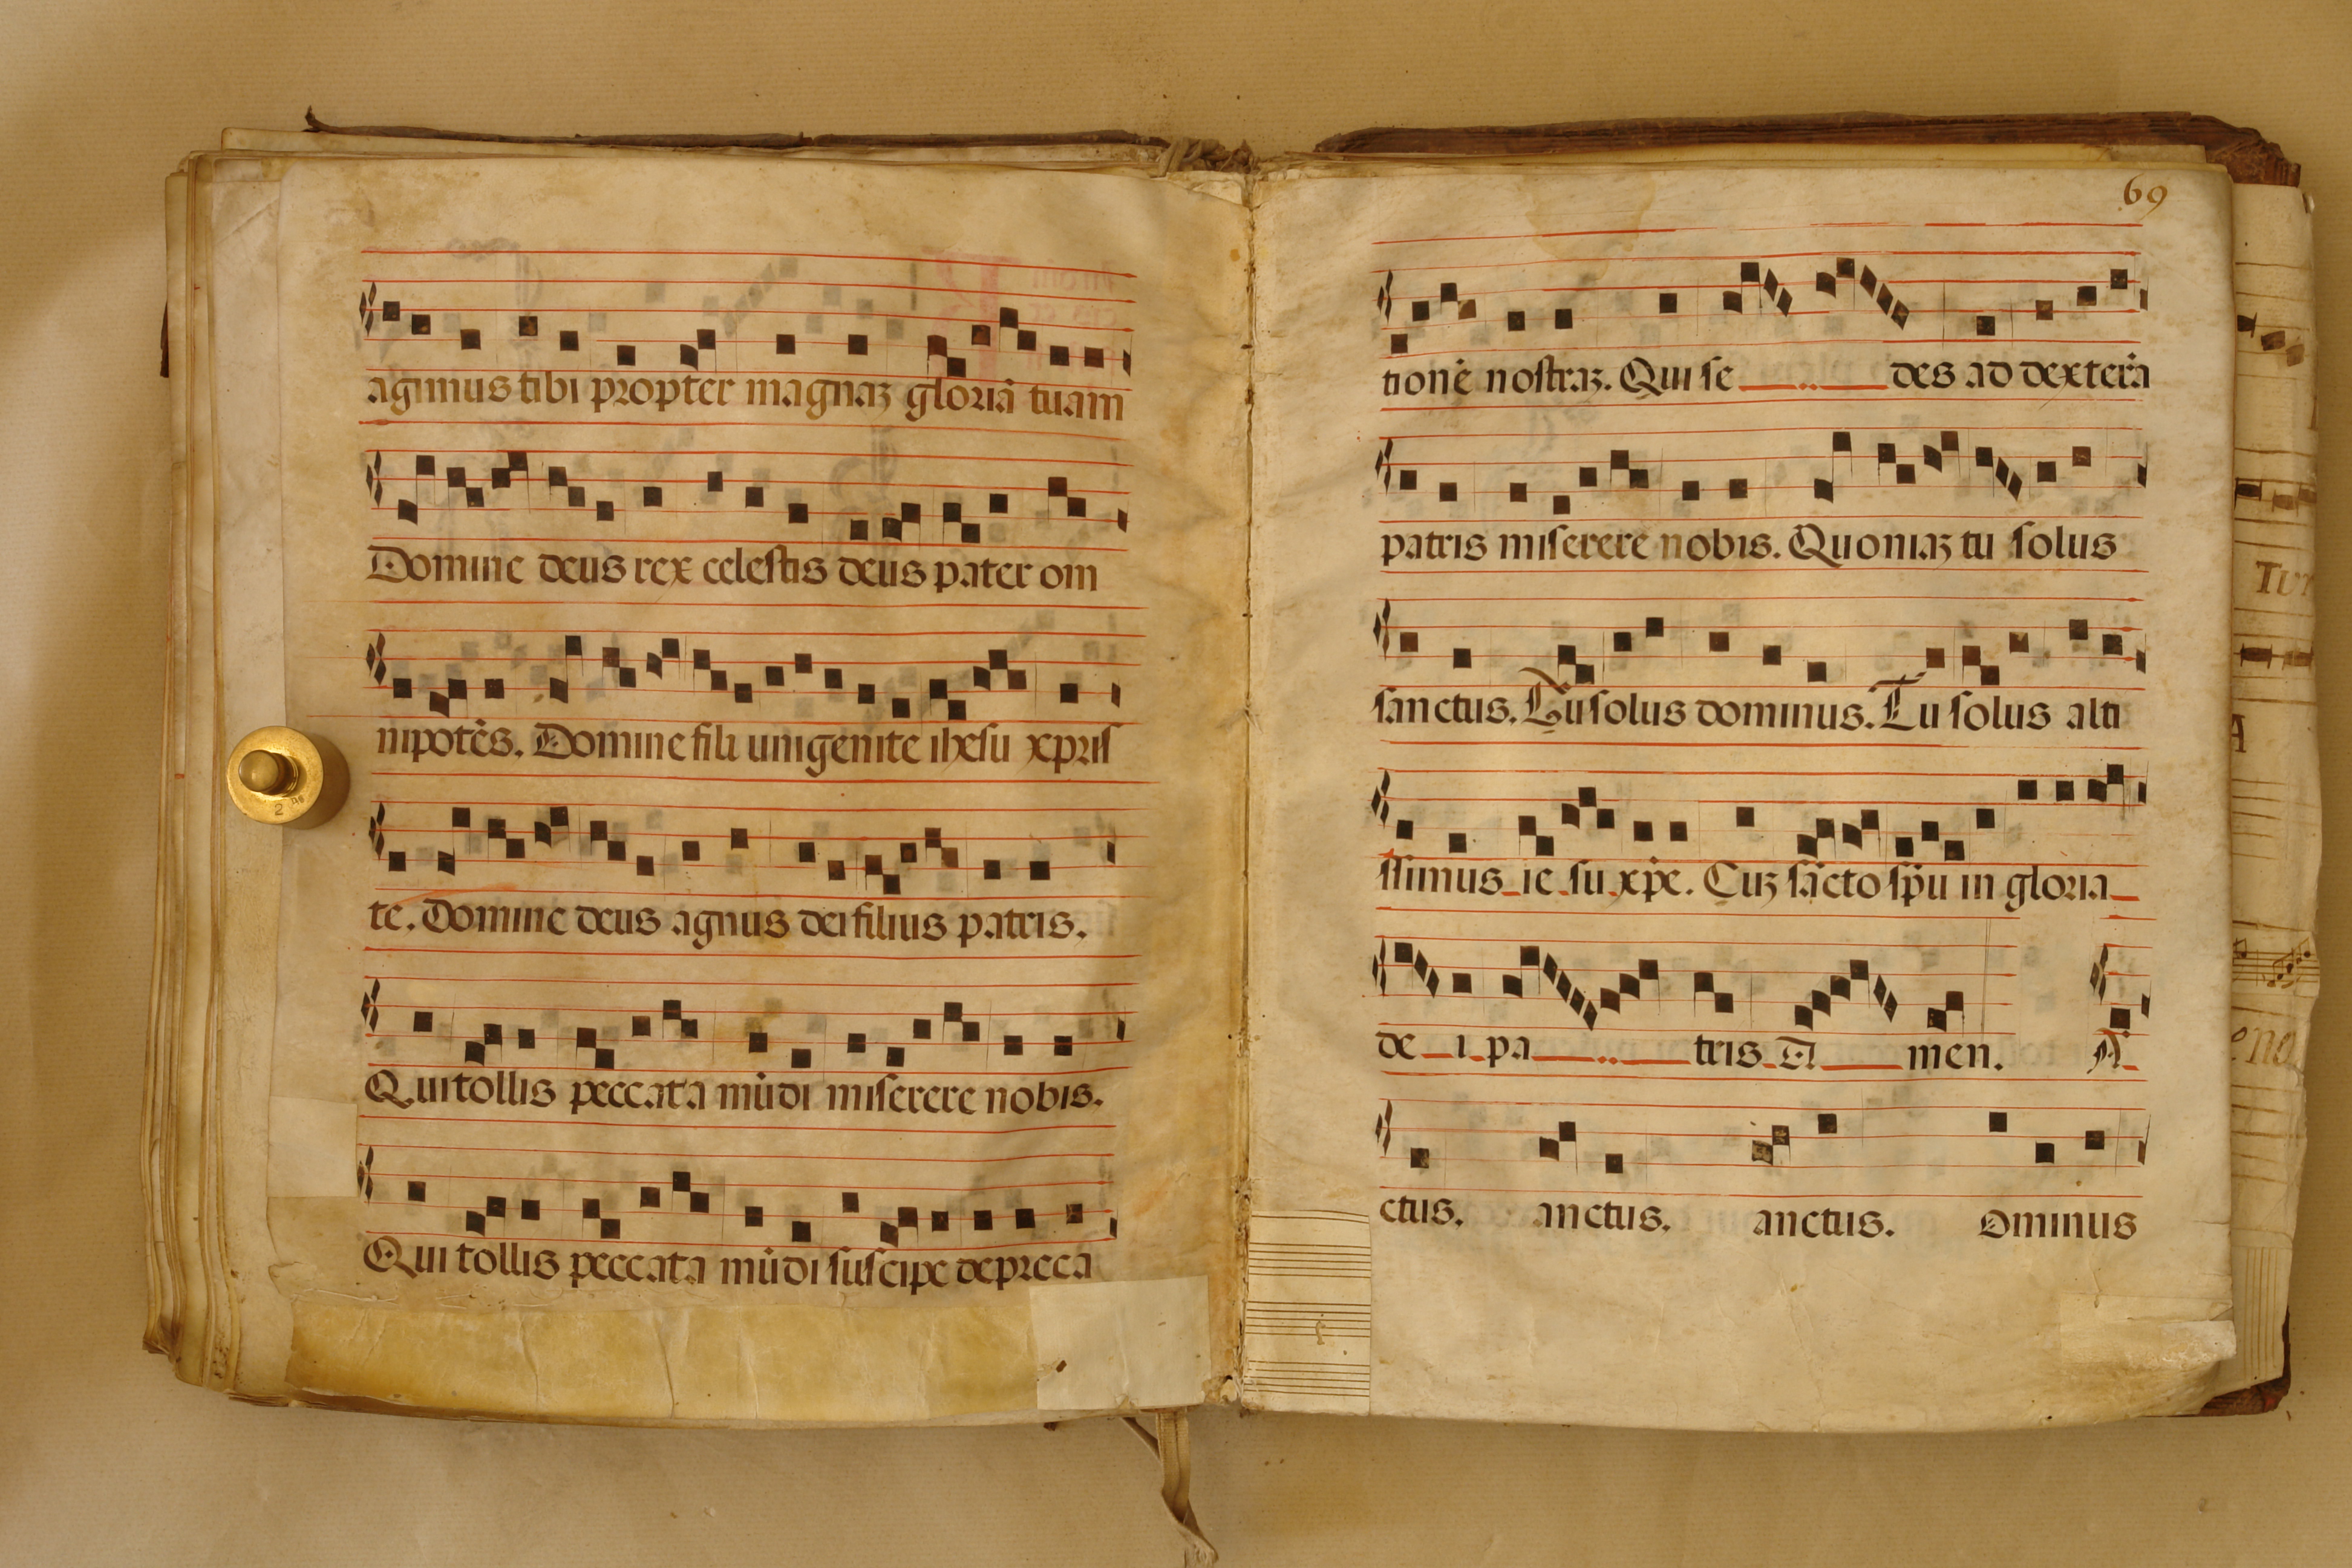 agimus tibi propter magnaꝫ gloriā tuam
Domine deus rex celestis deus pater om
nipotēs. Domine fili unigenite ihesu xpris
te. Domine deus agnus dei filius patris.
Qui tollis peccata mūdi miserere nobis.
Qui tollis peccata mūdi suscipe depreca
69
tionē nostraꝫ. Qui se des ad dexterā
patris miserere nobis. Quoniaꝫ tu solus
sanctus. Tu solus dominus. Tu solus alti
ssimus ie su xp̄e. Cuꝫ sācto sp̄u in gloria
de i pa tris A men. A
ctus. anctus. anctus. ominus
2